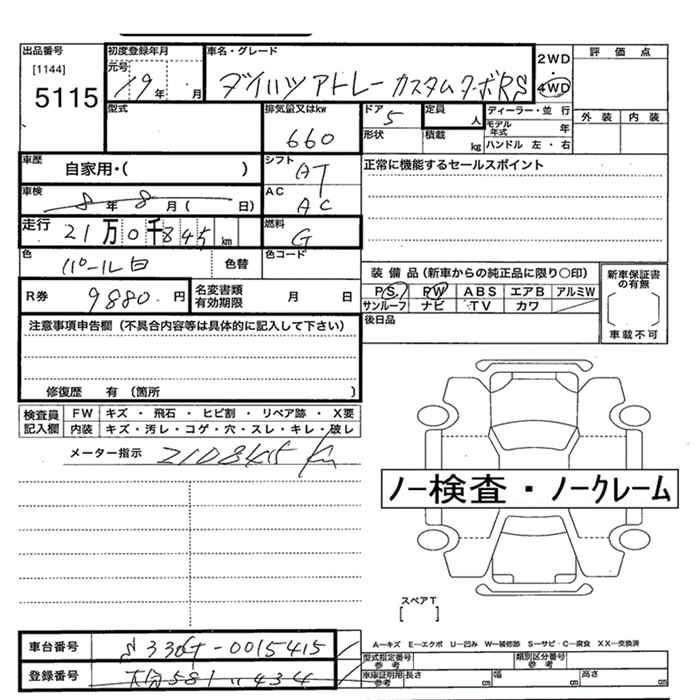 出品番号 [1144] 5115
初度登録年月 元号 19年 月
車名・グレード ダイハツ アトレー カスタムターボRS
2WD ・ 4WD
評価点
外装 内装
型式
排気量又はkw 660
ドア 5 形状
定員 人 積載 kg
ディーラー・並行
モデル年式 年
ハンドル 左・右
車歴 自家用・( )
シフト AT
正常に機能するセールスポイント
車検 8年 8月( 日)
AC AC
走行 21万0千845km
燃料 G
色 パール白 色替
色コード
装備品(新車からの純正品に限り○印)
P/S PW ABS エアB アルミW
サンルーフ ナビ TV カワ
新車保証書の有無
車載不可
R券 9880円
名変書類有効期限 月 日
後日品
注意事項申告欄(不具合内容等は具体的に記入して下さい)
修復歴 有(箇所
検査員記入欄
FW キズ・飛石・ヒビ割・リペア跡・X要
内装 キズ・汚レ・コゲ・穴・スレ・キレ・破レ
メーター指示 210845 km
ノー検査・ノークレーム
スペアT
[ ]
A−キズ E−エクボ U−凹み W−補修跡 S−サビ・C−腐食 XX−交換済
車台番号 S330G-0015415
登録番号 大分581 い 434
型式指定番号 参考
類別区分番号 参考
車庫証明用 参考 長さ cm 幅 cm 高さ cm